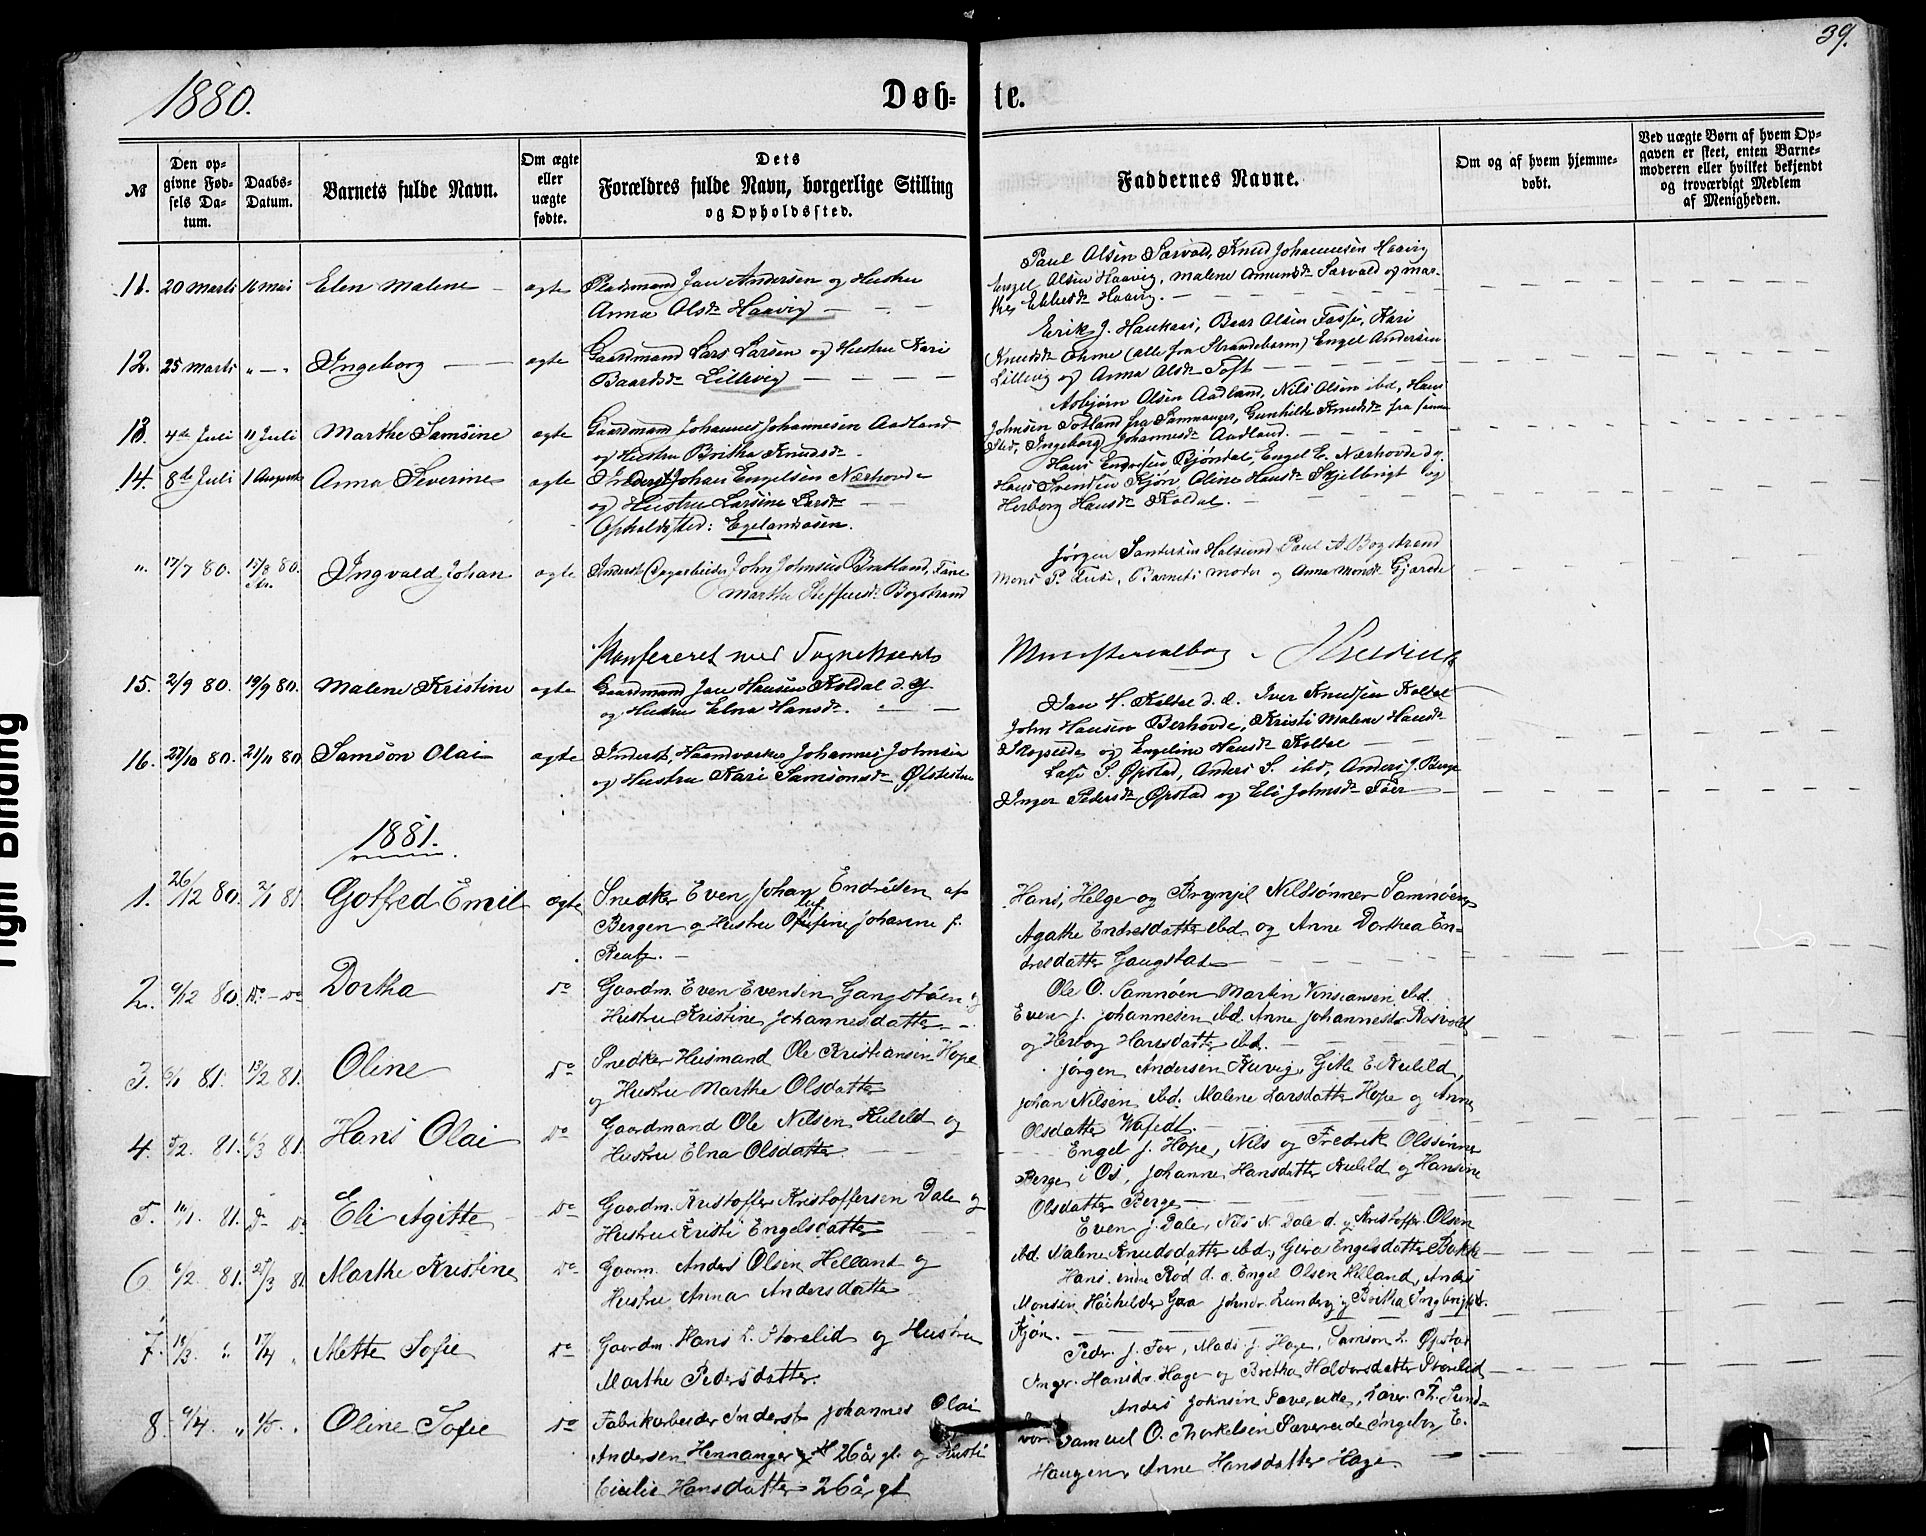 39.
1880.
Døb- te.
№
Den op-
givne Fød-
sels Da-
tum.
Daabs-
Datum.
Barnets fulde Navn.
Om ægte
eller
uægte
fødte.
Dets
Forældres fulde Navn, borgerlige Stilling
og Opholdssted.
Faddernes Navne.
Om og af hvem hjemme-
døbt.
Ved uægte Børn af hvem Op-
gaven er skeet, enten Barne-
moderen eller hvilket bekjendt
og troværdigt Medlem
af Menigheden.
11. 20 Marts 16 Mai Elen Malene ægte Pladsmand Jan Andersen og Hustru
Anna Olsdr Haavig
Paul Olsen Sævold, Knud Johannesen Haavig
Engel Olsen Haavig, Malene Amundsdr Sævold og Mar-
the Ebbesdr Haavig.
12. 25 Marts " — " Ingeborg ægte Gaardmand Lars Larsen og Hustru Kari
Baardsdr Lillevig
Erik J. Haukaas, Baar Olsen Fosse, Kari
Knudsdr Ohme (alle fra Strandebarm) Engel Andersen
Lillevig og Anna Olsdr Toft
13. 4de Juli 11 Juli Marthe Samsine ægte Gaardmand Johannes Johannesen Aadland
og Hustru Britha Knudsdr
Asbjørn Olsen Aadland, Nils Olsen ibd, Hans
Johnsen Totland fra Sammanger, Gunhilde Knudsdr fra samme
Sted, Ingeborg Johannesdr Aadland.
14. 8de Juli 1 August Anna Severine ægte Inderst Johan Engelsen Nærhovde
og Hustru Larsine Larsdr
Opholdssted: Egelandsosen.
Hans Endresen Bjøndal, Engel E. Nærhovde d.y.
Hans Svendsen Kjøn, Oline Hansdr Skjelbrigt og
Herborg Hansdr Koldal.
" 17/7 80. 15/8 80. Ingvald Johan ægte Inderst (Dagarbeider) John Johnsen Bratland, Fane
Marthe Steffensdr Bogstrand
Jørgen Sandersen Halsund Paul A. Bogstrand
Mons P. Tuse, Barnets moder og Anna Monsdr Gjærde
Konfereret med Sognekaldets Ministerialbog
15. 2/9 80. 19/9 80. Malene Kristine ægte Gaardmand Jan Hansen Koldal d.y.
og Hustru Elna Hansdr.
Jan H. Koldal d. æ. Iver Knudsen Koldal
John Hansen Berhovde, Kristi Malene Hansdr
Skogseide og Engeline Hansdr Koldal
16. 27/10 80. 21/11 80 Samson Olai ægte Inderst, Haandværker Johannes Johnsen
og Hustru Kari Samsonsdr Øvstestun
Lasse S. Øpstad, Anders S. ibd, Anders J. Berge
Inger Pedersdr Øpstad og Eli Johnsdr Føer
1881.
1. 26/12 80. 2/1 81. Gotfred Emil ægte Snedker Even Johan Endresen af
Bergen og Hustru Olufine Johanne f.
Reutz.
Hans, Helge og Brynjel Nilssønner Samnøen
Agathe Endresdatter ibd og Anne Dorthea En-
dresdatter Gaugstad
2. 6/12 80. Do - Do Dorthea Do Gaardm. Even Evensen Gangstøen og
Hustru Kristine Johannesdatter
Ole O. Samnøen Martin Kristiansen ibd.
Even J. Johannesen ibd. Anne Johannesdr Rosvold
og Herborg Hansdatter ibd.
3. 6/1 81. 13/2 81. Oline Do Snedker Husmand Ole Kristiansen Hope
og Hustru Marthe Olsdatter
Jørgen Andersen Kuvig, Gitle E. Kuleld,
Johan Nilsen ibd. Malene Larsdatter Hope og Anne
Olsdatter
4. 5/2 81. 6/3 81. Hans Olai Do Gaardmand Ole Nilsen Kuleld og
Hustru Elna Olsdatter
Engel J. Hope, Nils og Fredrik Olssønner
Berge i Os, Johanne Hansdatter Kuleld og Hansine
Olsdatter Berge
5. 10/1 81. Do Do Eli Agitte Do Gaardm. Kristoffer Kristoffersen Dale og
Hustru Kristi Engelsdatter
Even J. Dale, Nils N. Dale d. y. Kristoffer Olsen
ibd. Malene Knudsdatter ibd, Gura Engelsdatter Bakke
6. 6/2 81. 27/3 81 Marthe Kristine Do Gaarm. Anders Olsen Helland og
Hustru Anna Andersdatter
Hans indre Rød d. æ. Engel Olsen Helland, Anders
Monsen Johnsdr. Lundervig Britha Ingbrigtsdr.
Kjøn.
7. 18/3 " 17/4 " Mette Sofie Do Gaardm. Hans L. Storelid og Hustru
Marthe Pedersdatter.
Peder J. Før, Mads J. Hage, Samson L. Øpstad
Inger Hansdr. Hage og Britha Haldorsdatter Storelid
8. 9/4 " 1/5 " Oline Sofie Do Fabrikarbeider Inderst Johannes Olai
Andersen Hennanger 26 år gl. og Hustru
Cicilie Hansdatter 26 år gl
Anders Johnsen Sævereide, Lars Th. Sund-
vor. Samuel O. Thorkelsen Sævereide Ingebor E.
Haugen, Anne Hansdatter Hage
Tight Binding